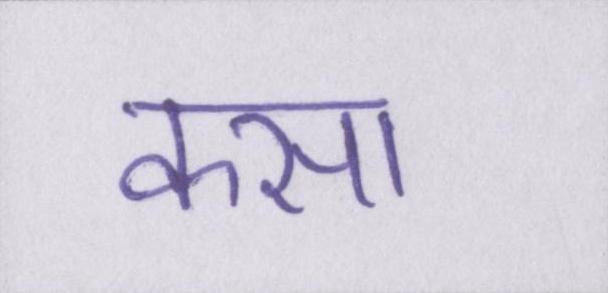 कसा